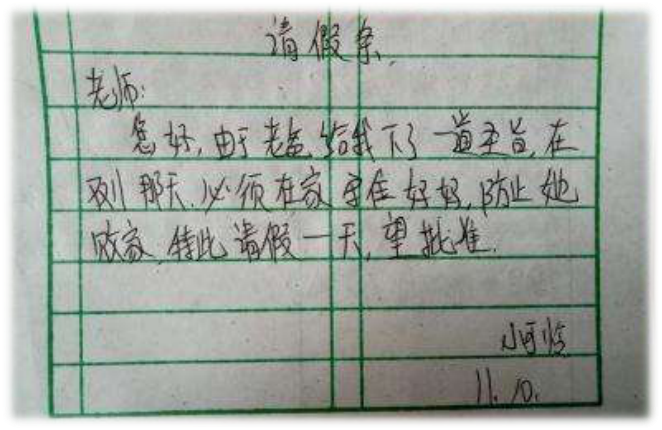 请假条.
老师:
您好,由于老爸给我下了一道圣旨,在
那天.必须在家守住妈妈,防止她
败家,特此请假一天,望批准.
小可怜
11.10.